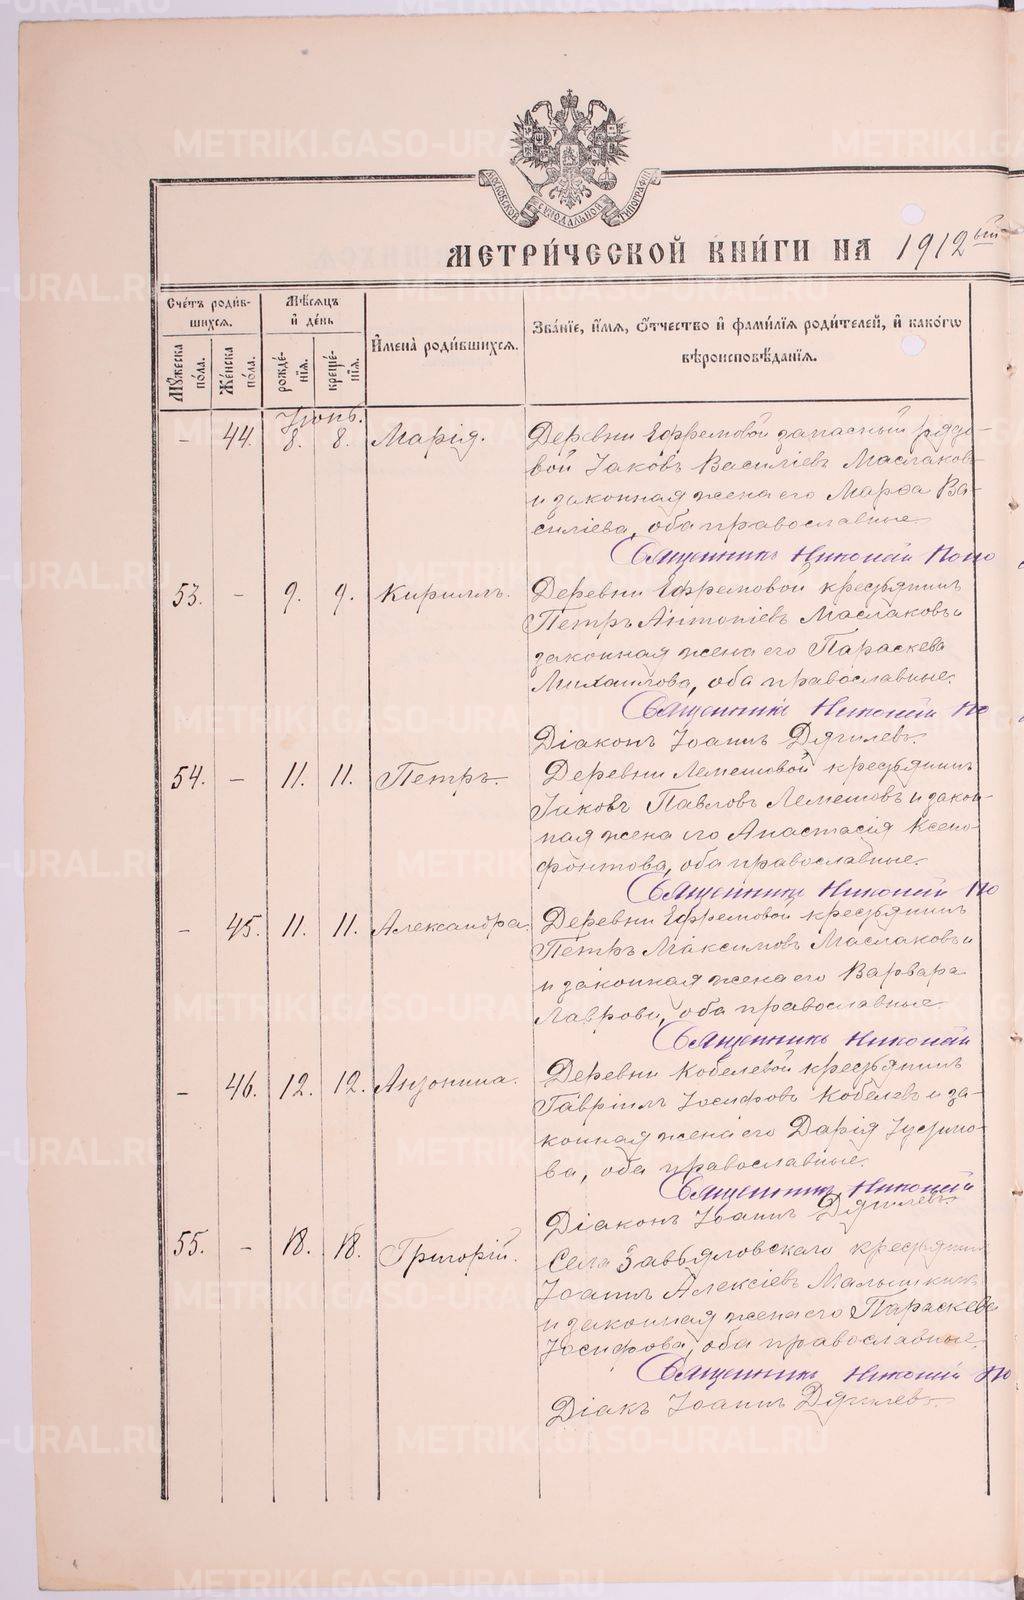 МОСКОВСКОЙ СѴНОДАЛЬНОЙ ТИПОГРАФІИ
МЕТРИ́ЧЕСКОЙ КНИ́ГИ НА 1912ый
Сче́тъ роди́в-
шихся.
Мѣ́сяцъ
и҆ де́нь
И҆мена̀ роди́вшихся.
Зва́нїе, и҆́мя, ѻ҆́тчество и҆ фами́лїя роди́телей, и҆ како́гѡ
вѣроисповѣ́данїя.
Мꙋ́жеска
по́ла.
Же́нска
по́ла.
рожде́-
нїя.
креще́-
нїя.
Іюнь.
- 44. 8. 8. Марія. Деревни Ефремовой запасный рядо-
вой Іаковъ Василіевъ Маслаковъ
и законная жена его Марѳа Ва-
силіева, оба православные
Священникъ Николай Попо
53. - 9. 9. Кириллъ. Деревни Ефремовой крестьянинъ
Петръ Антоніевъ Маслаковъ и
законная жена его Параскева
Михаилова, оба православные.
Священникъ Николай По
Діаконъ Іоаннъ Дягилевъ.
54. - 11. 11. Петръ. Деревни Лемешовой крестьянинъ
Іаковъ Павловъ Лемешовъ и закон-
ная жена его Анастасія Ксено-
фонтова, оба православные.
Священникъ Николай По
- 45. 11. 11. Александра. Деревни Ефремовой крестьянинъ
Петръ Максимовъ Маслаковъ и
и законная жена его Варвара
Лаврова, оба православные
Священникъ Николай
- 46. 12. 12. Антонина. Деревни Кобелевой крестьянинъ
Гавріилъ Іосифовъ Кобелевъ и за-
конная жена его Дарія Іустино-
ва, оба православные.
Священникъ Николай
Діаконъ Іоаннъ Дягилевъ.
55. - 18. 18. Григорій. Села Завьяловскаго крестьянинъ
Іоаннъ Алексіевъ Малышкинъ
и законная жена его Параскева
Іосифова, оба православные.
Священникъ Николай По
Діакъ Іоаннъ Дягилевъ.
METRIKI.GASO-URAL.RU